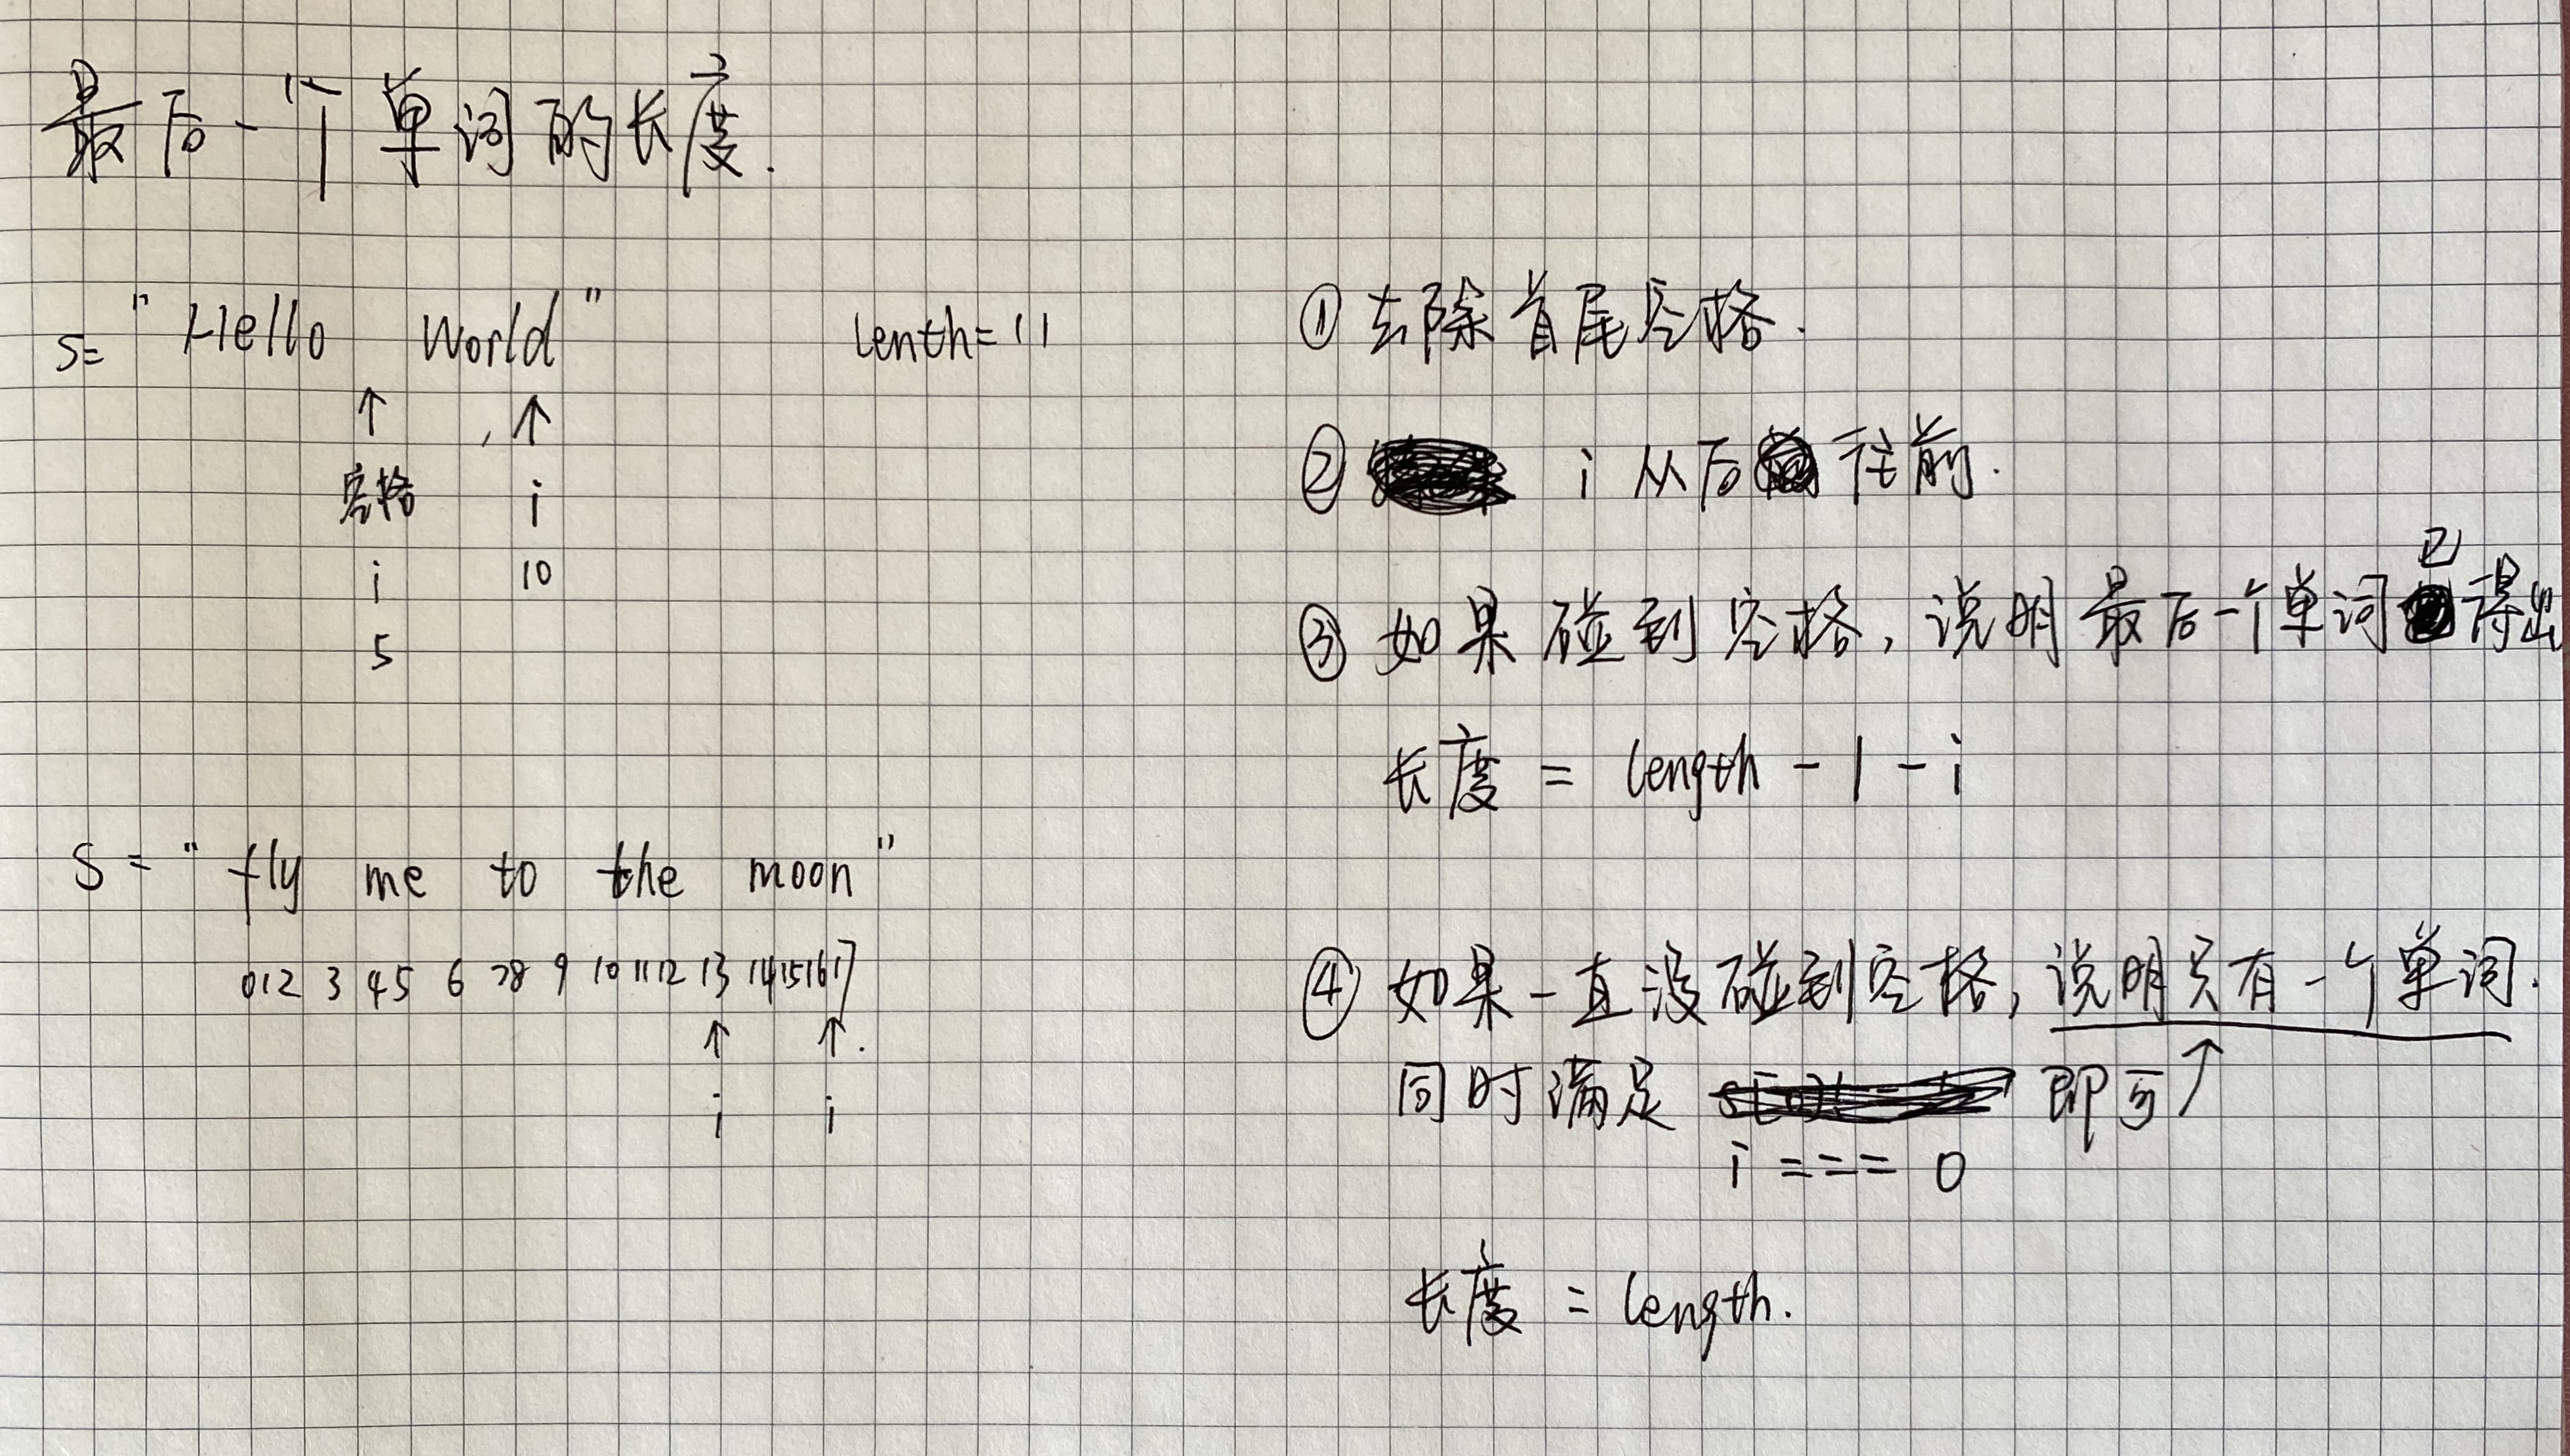 最后一个单词的长度.
s= "Hello World" lenth=11
↑ ↑
空格 i
i 10
5
S = "fly me to the moon"
0 1 2 3 4 5 6 7 8 9 10 11 12 13 14 15 16 17
↑ ↑
i i
① 去除首尾空格.
② i 从后往前.
③ 如果碰到空格, 说明最后一个单词已得出
长度 = length - 1 - i
④ 如果一直没碰到空格, 说明只有一个单词.
同时满足 i === 0 即可
长度 = length.